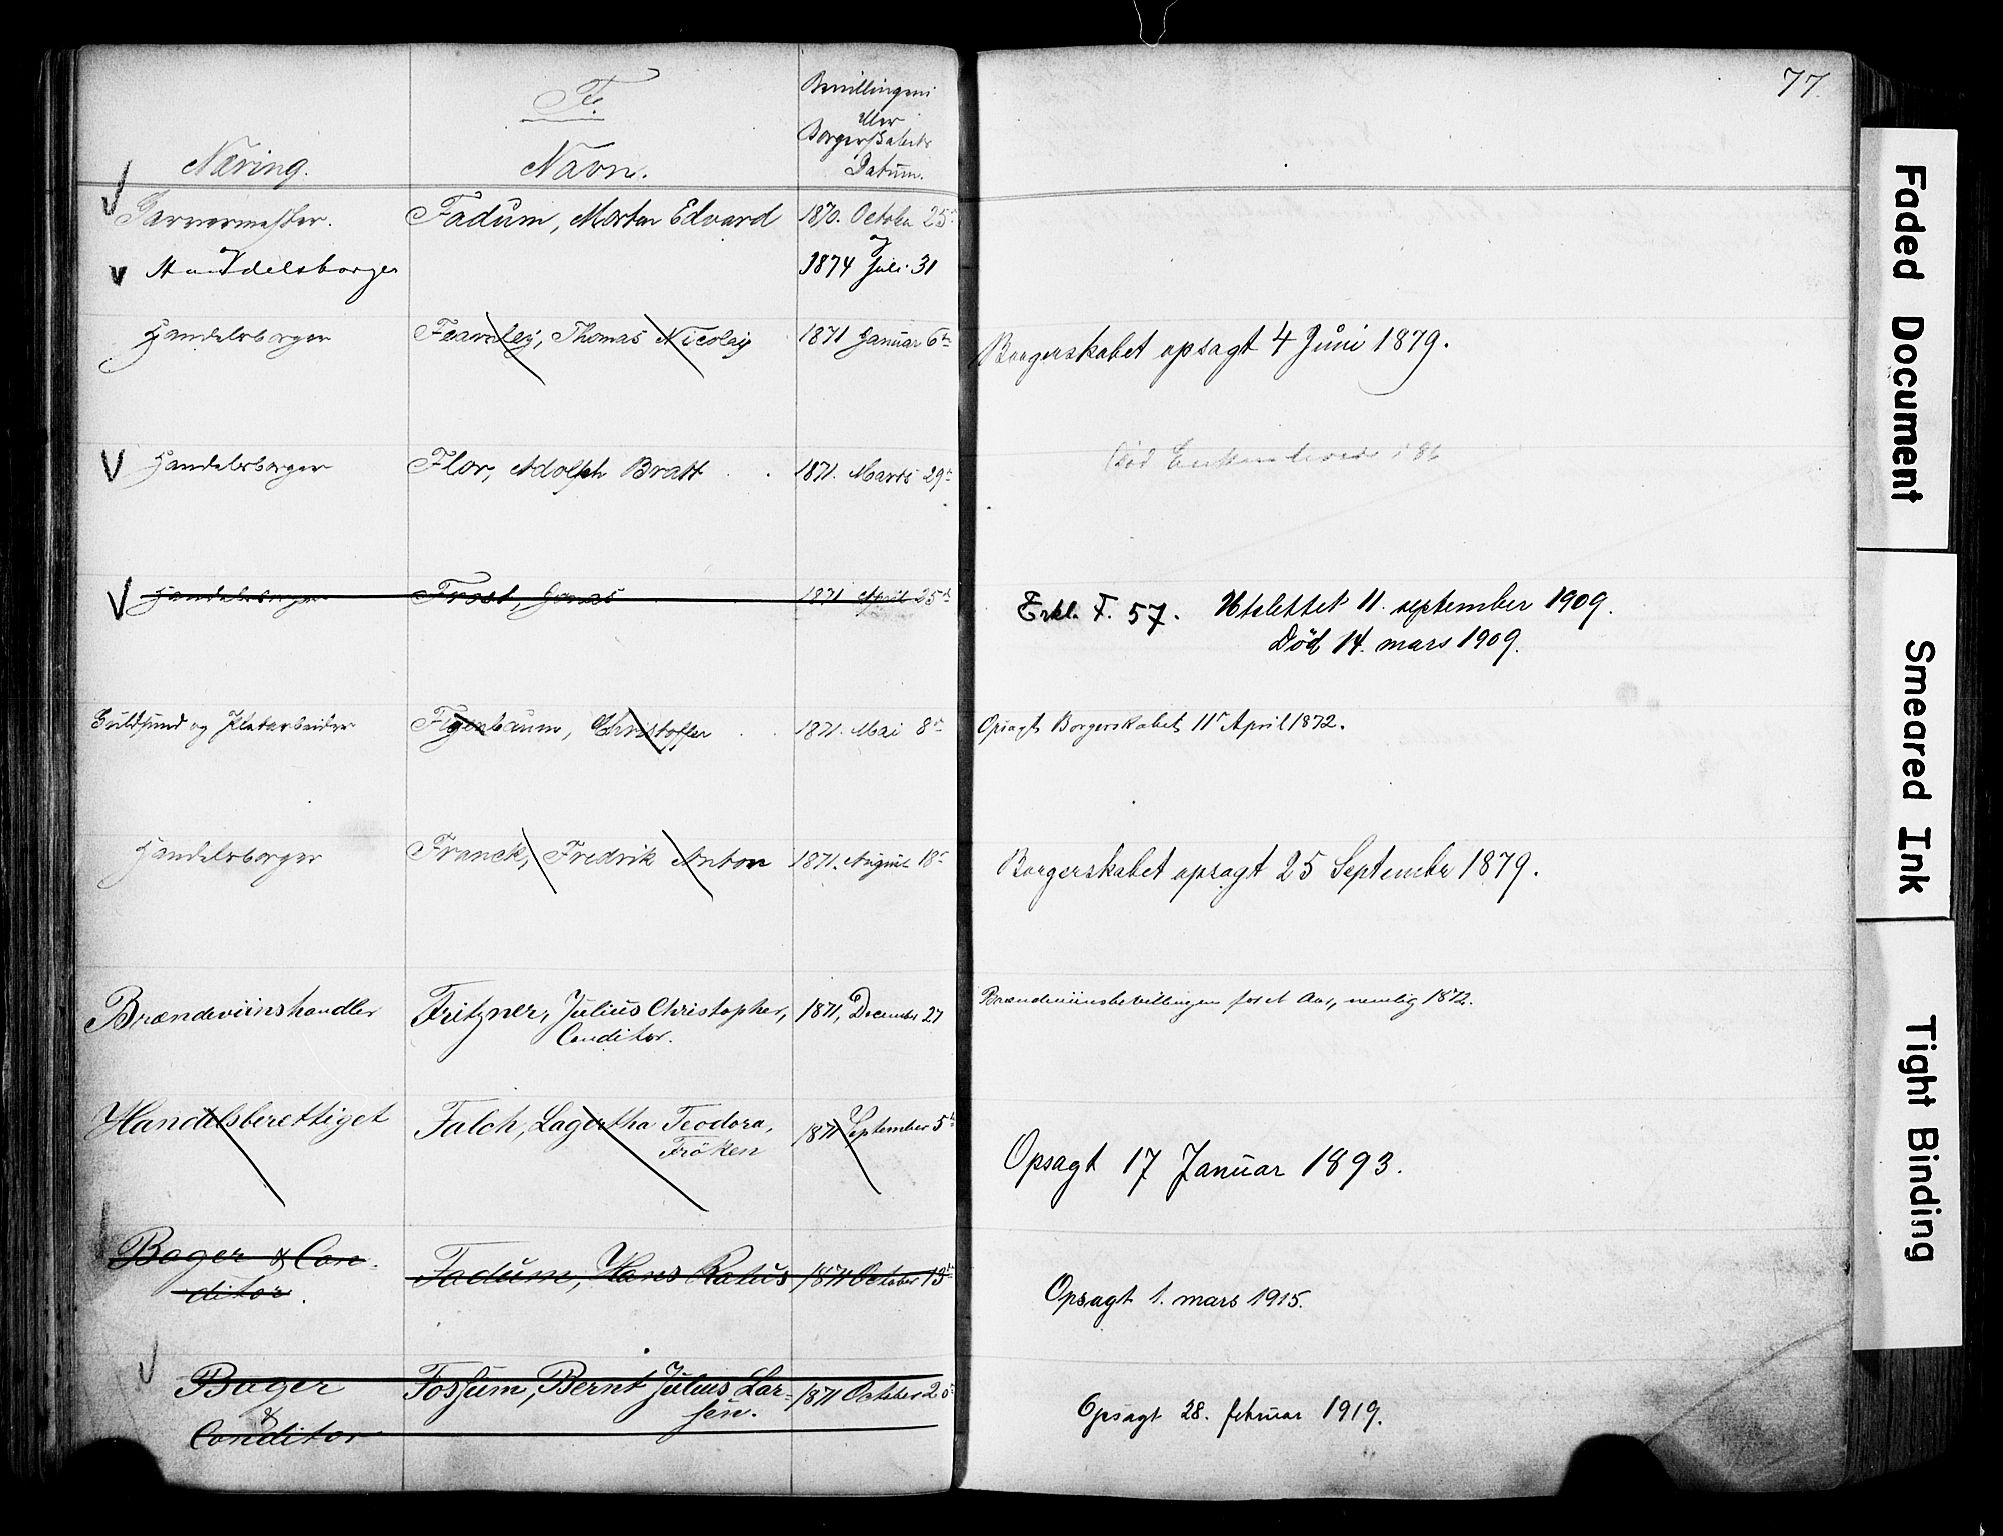 77.
F.
Næring.
Navn.
Bevillingens
eller
Borgerskabets
Datum.
Garvermester.
Fadum, Morten Edvard
1870. October 25
og
Handelsborger
1874 Juli 31
Handelsborger
Fearnley, Thomas Nicolay
1871 Januar 6te
Borgerskabet opsagt 4 Juni 1879.
Handelsborger
Flor, Adolph Bratt
1871. Marts 29
Død
Handelsborger
Frost, Jonas
1871 April 25
Erkl. F. 57. Utslettet 11. september 1909.
Død 14. mars 1909.
Guldsmed og Platarbeider
Figenbaum, Christoffer
1871. Mai 8
Opsagt Borgerskabet 11 April 1872.
Handelsborger
Franck, Fredrik Anton
1871. August 18
Borgerskabet opsagt 25 September 1879.
Brændeviinshandler
Fritzner, Julius Christopher,
Conditor.
1871, December 27
Brændeviinsbevillingen for et Aar, nemlig 1872.
Handelsberettiget
Falch, Lagertha Teodora,
Frøken
1871 September 5
Opsagt 17 Januar 1893.
Bager & Con-
ditor.
Fadum, Hans Ratus
1871 October 13
Opsagt 1. mars 1915.
Bager
&
Conditor
Fossum, Bernt Julius Lar-
sen.
1871 October 20
Opsagt 28. februar 1919.
Faded Document
Smeared Ink
Tight Binding